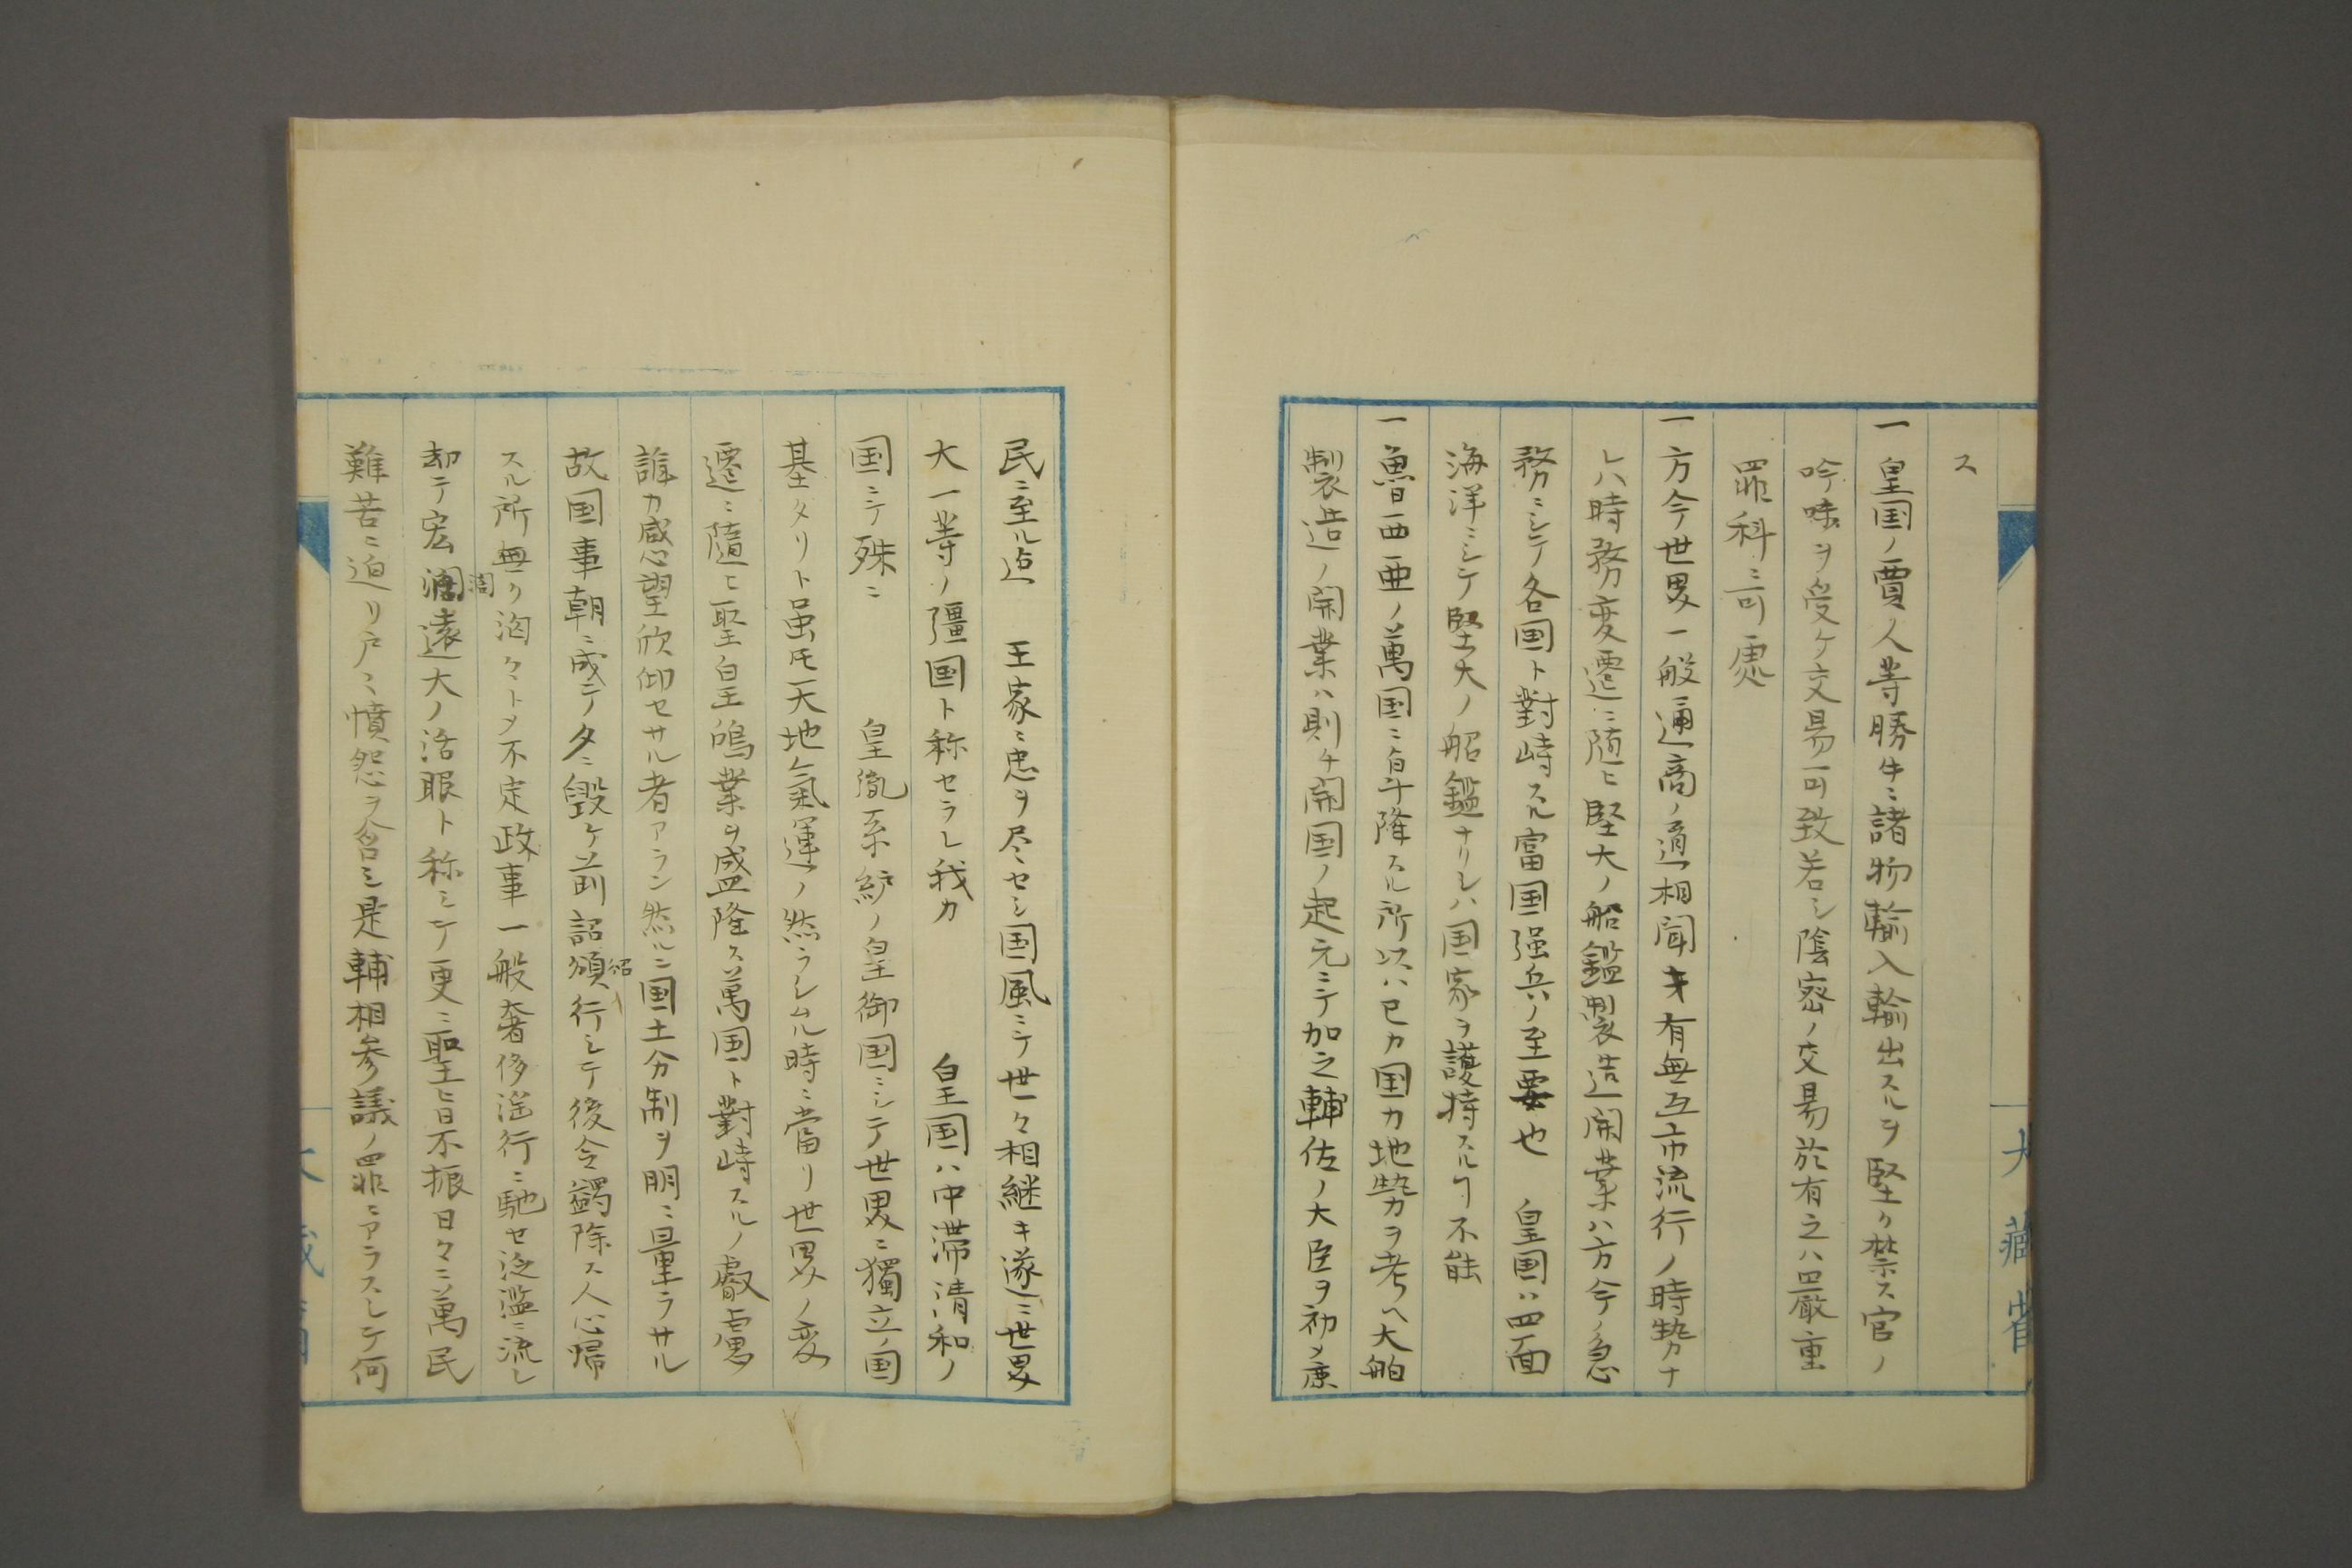 ス
一皇国ノ賈人等勝牛ニ諸物輸入輸出スルヲ堅ク禁ス官ノ
吟味ヲ受ケ交易可致若シ陰密ノ交易於有之ハ嚴重
罪科ニ可處
一方今世界一般通商ノ道相聞キ有無互市流行ノ時勢ナ
レハ時務変遷ニ随ヒ堅大ノ船鑑製造開業ハ方今ノ急
務ニシテ各国ト對峙スル富国强兵ノ至要也　皇国ハ四面
海洋ニシテ堅大ノ船鑑ナリシハ国家ヲ護持スルヿ不能
一魯西亜ノ萬国ニ自斗降スル所以ハ已カ国カ地勢ヲ考ヘ大舶
製造ノ開業ハ則チ開国ノ起元ニテ加之輔佐ノ大臣ヲ初メ庶
民ニ至ル迠　王家ニ忠ヲ尽セシ国風ニテ世々相継キ遂ニ世界
大一等ノ彊国ト称セラレ我カ　皇国ハ中滞清和ノ
国ニテ殊ニ　皇胤系紗ノ皇御国ニシテ世界ニ獨立ノ国
基タリト虽モ天地氣運ノ然ラシムル時ニ當リ世界ノ変
遷ニ隨ヒ聖皇鴻業ヲ盛隆ス萬国ト對峙スルノ叡慮
誰カ感望欣仰セサル者アラン然ルニ国土分制ヲ明ニ量ラサル
故国事朝ニ成テ夕ニ毀ケ前詔頒行シテ後令蠲除ス人心歸
スル所無ク洶々トメ不定政事一般奢侈淫行ニ馳セ泛濫ニ流レ
却テ宏濶遠大ノ活眼ト称シテ更ニ聖ヒ日不振日々ニ萬民
難苦ニ迫リ戸ニ憤怨ヲ含ミ是輔相参議ノ罪ニアラスシテ何
大藏省